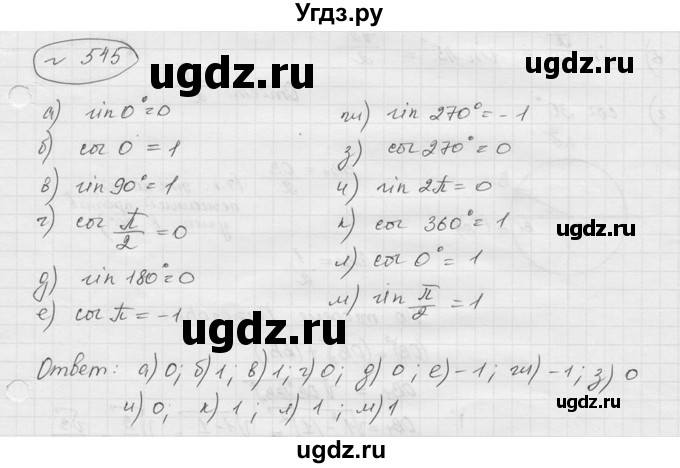 Угдз.ру
№ 545
а) sin 0° = 0
б) cos 0 = 1
в) sin 90° = 1
г) cos π/2 = 0
д) sin 180° = 0
е) cos π = -1
ж) sin 270° = -1
з) cos 270° = 0
и) sin 2π = 0
к) cos 360° = 1
л) cos 0° = 1
м) sin π/2 = 1
Ответ: а) 0; б) 1; в) 1; г) 0; д) 0; е) -1; ж) -1; з) 0
и) 0; к) 1; л) 1; м) 1
ugdz.ru
ugdz.ru
ugdz.ru
ugdz.ru
ugdz.ru
ugdz.ru
© ugdz.ru